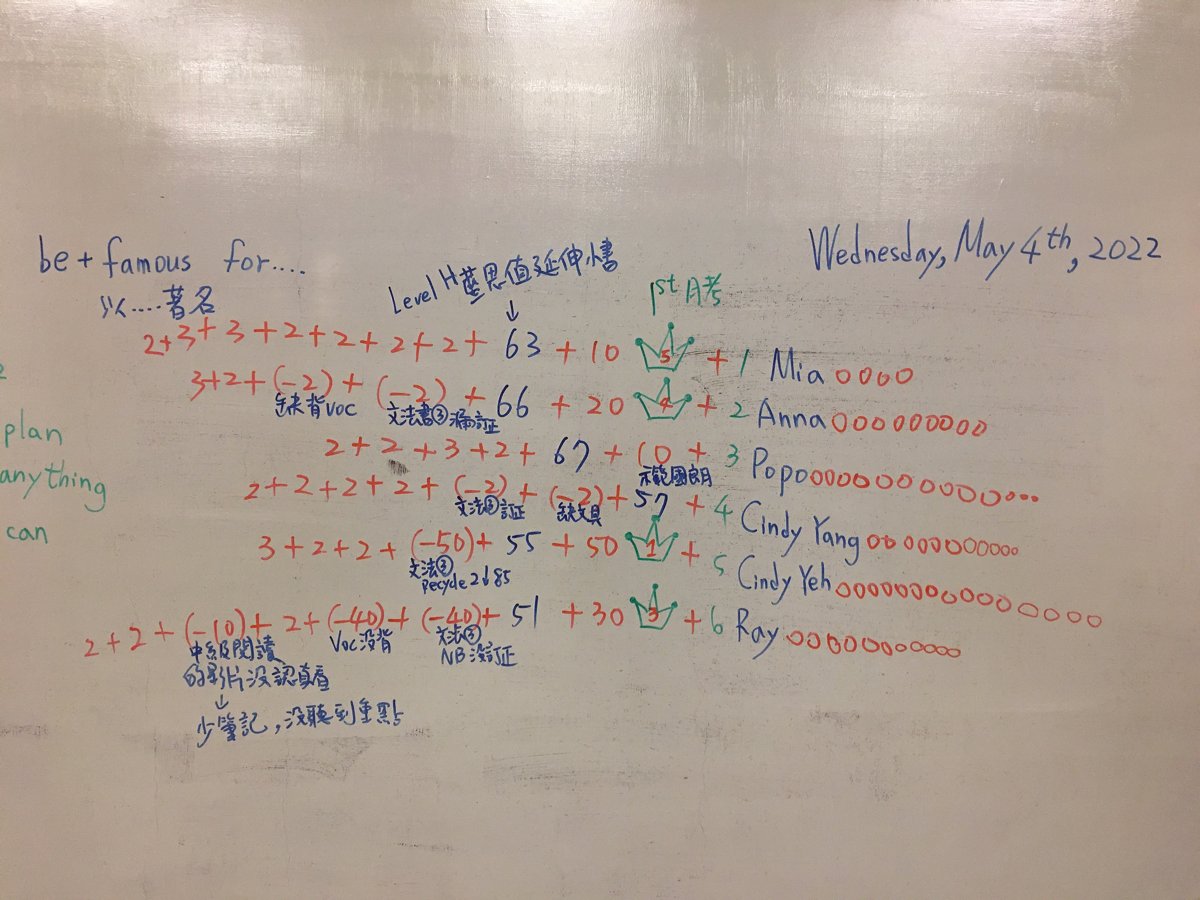 be + famous for....
以....著名
Wednesday, May 4th, 2022
Level H 延伸書
↓
1st 月考
2+3+3+2+2+2+2+63+10 5 +1 Mia oooo
3+2+(-2)+(-2)+66+20 4 +2 Anna ooooooooo
缺背voc 文法書③漏訂正
2+2+3+2+67+10+3 Popo
示範國朗
2+2+2+2+(-2)+(-2)+57+4 Cindy Yang
文法③訂正 缺文具
3+2+2+(-50)+55+50 1 +5 Cindy Yeh
文法③
Recycle 2↓85
2+2+(-10)+2+(-40)+(-40)+51+30 3 +6 Ray
中級閱讀 Voc沒背 文法③
的影片沒認真看 NB沒訂正
↓
少筆記,沒聽到重點
plan
anything
can